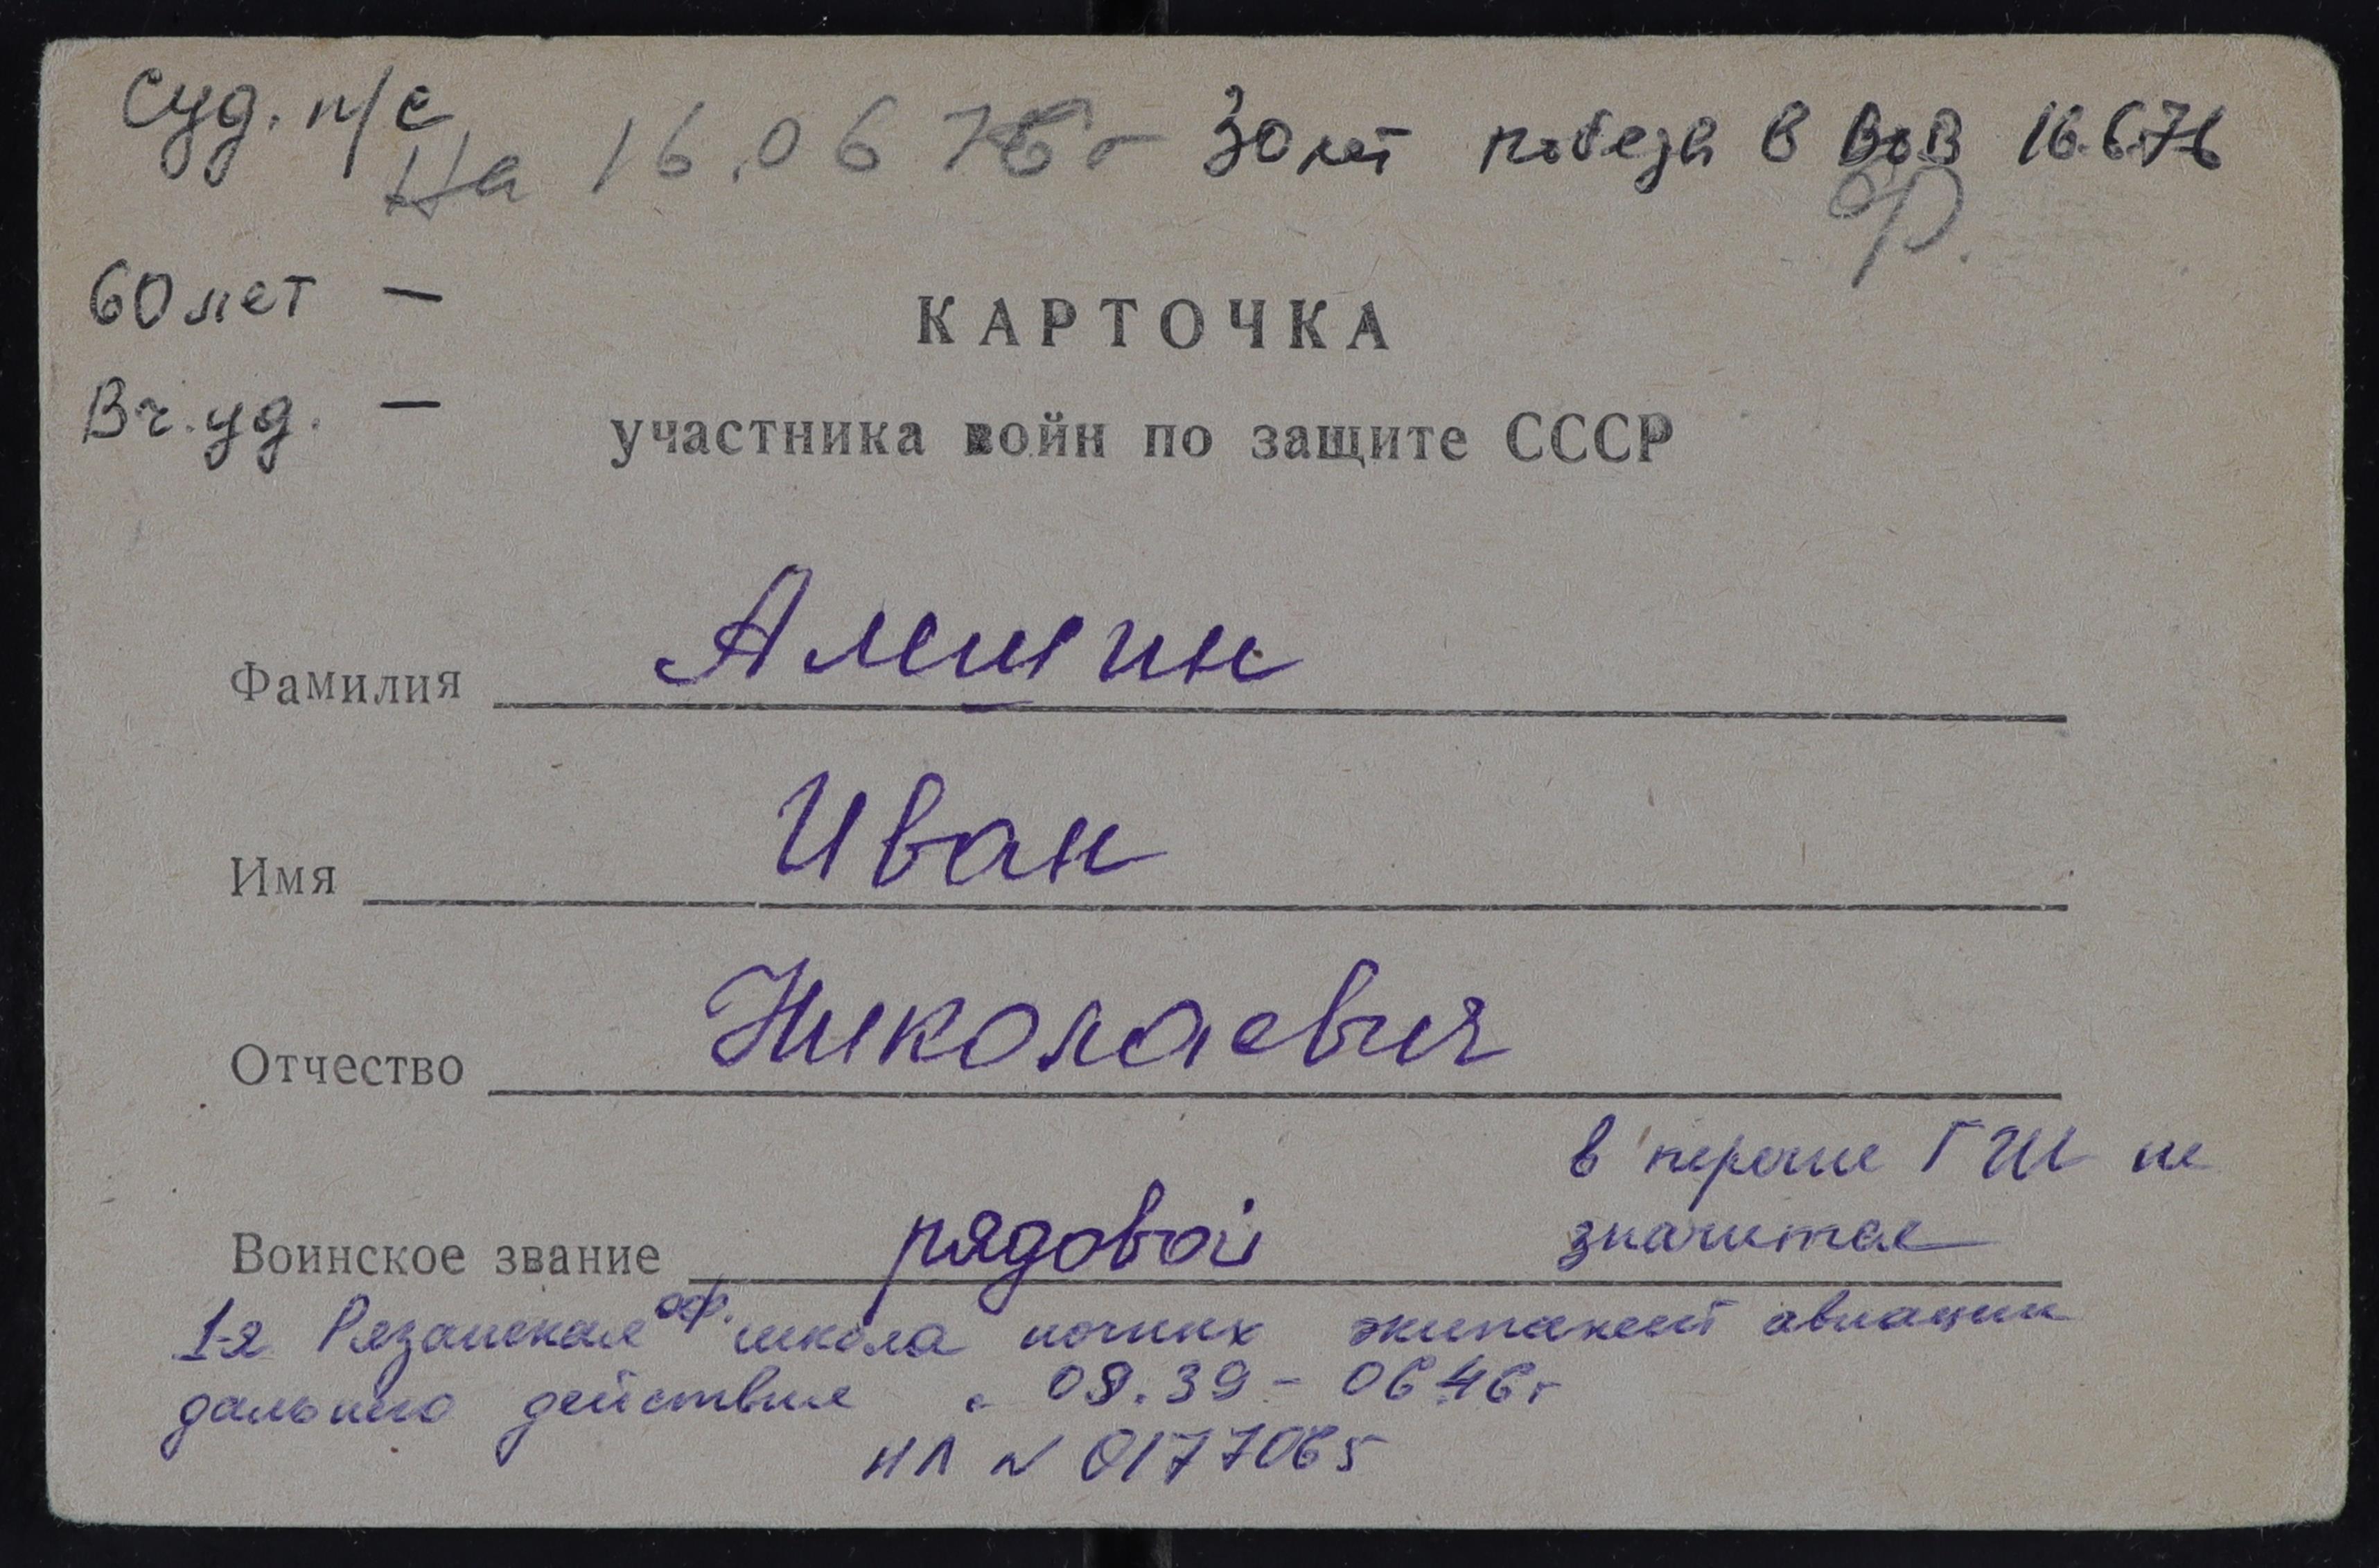 Суд. п/с
На 16.06 76 г 30 лет победа в ВОВ 16.6.76
60 лет —
Вг. уд. —
КАРТОЧКА
участника войн по защите СССР
Фамилия Алешин
Имя Иван
Отчество Николаевич
в перечне ГШ не
Воинское звание рядовой значится
1-я Рязанская оф. школа ночных экипажей авиации
дальнего действия с 09.39 - 06 46 г
НЛ № 0177065